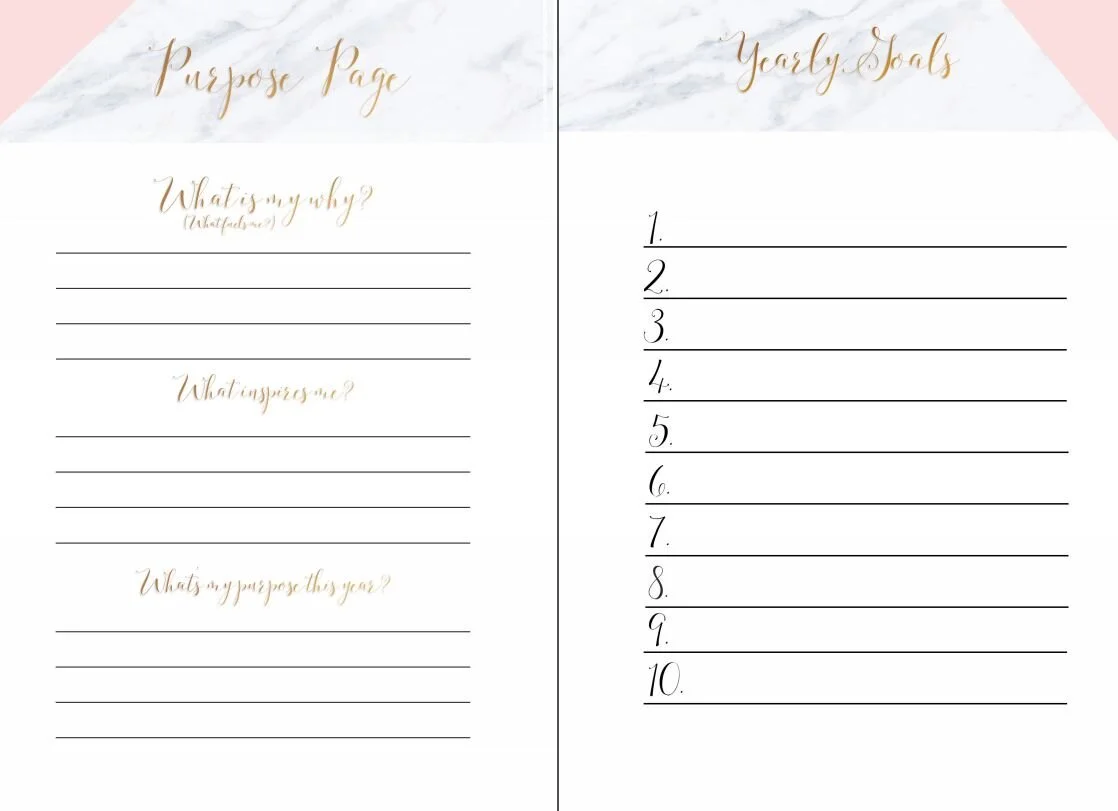 Purpose Page
What is my why?
(What fuels me?)
What inspires me?
What's my purpose this year?
Yearly Goals
1.
2.
3.
4.
5.
6.
7.
8.
9.
10.